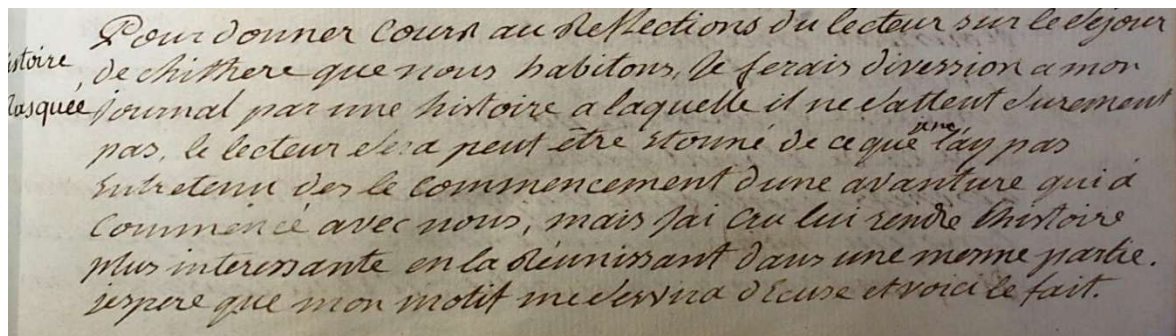 Pour donner cours au Reflections du lecteur sur le sejour
istoire
de chithere que nous habitons, Je ferais divession a mon
Masquée
journal par une histoire a laquelle il ne s'attent surement
pas, le lecteur sera peut être Etonné de ce que je ne l'ay pas
Entretenu des le commencement d'une avanture qui à
Commencé avec nous, mais J'ai cru lui rendre l'histoire
plus interessante en la Réunissant dans une mesme partie.
jespere que mon motif me servira d'Ecuse et voici le fait.